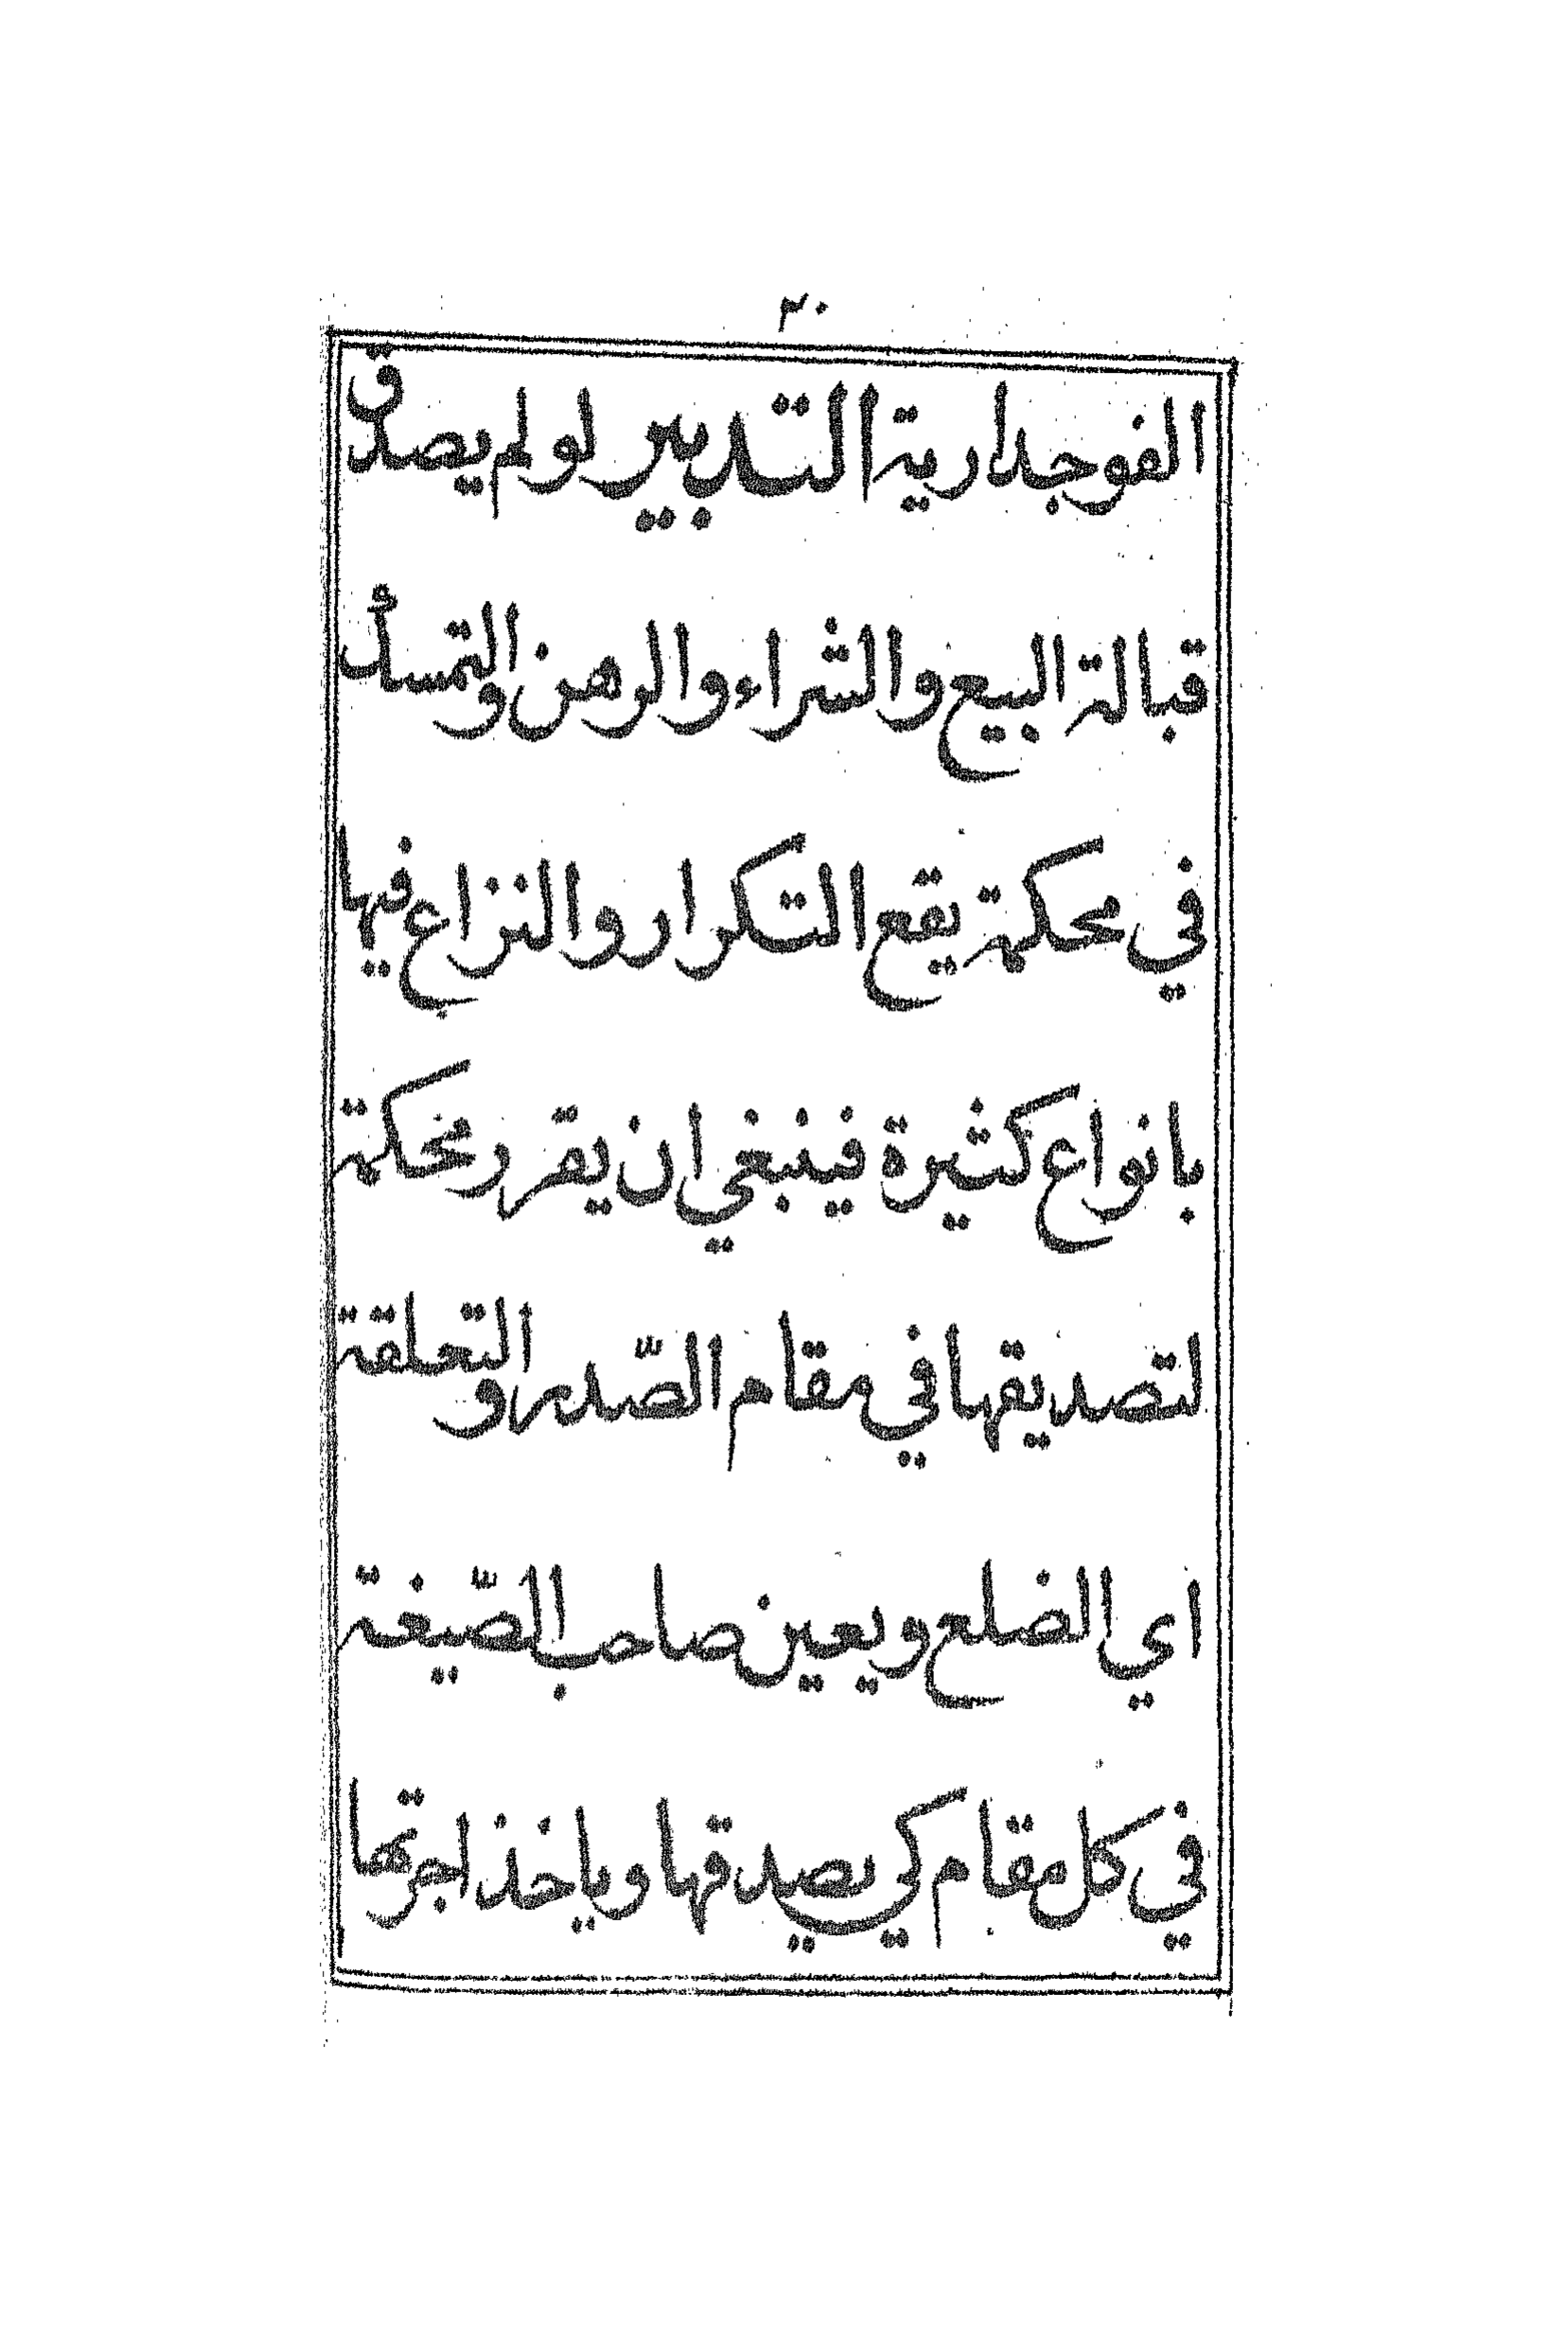 ٣٠
الفوجدارية التدبير لو لم يصدق
قبالة البيع والشراء والرهن والتمسك
في محكمة يقع التكرار والنزاع فيها
بانواع كثيرة فينبغي ان يقرر محكمة
لتصديقها في مقام الصّدر والتعلقة
اي الضلع ويعين صاحب الصّيغة
في كل مقام كي يصدقها وياخذ اجرتها